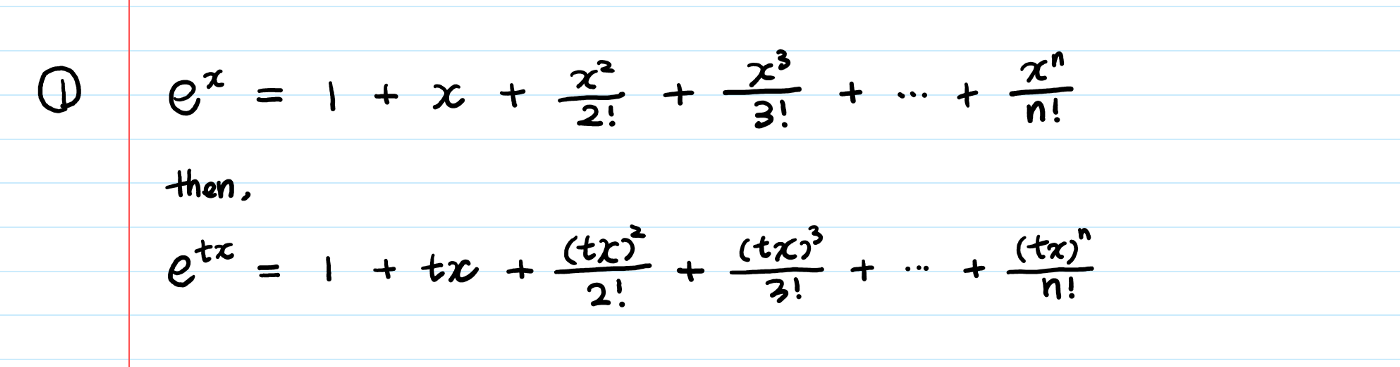 ① e^x = 1 + x + x^2/2! + x^3/3! + ... + x^n/n!
then,
e^{tx} = 1 + tx + (tx)^2/2! + (tx)^3/3! + ... + (tx)^n/n!